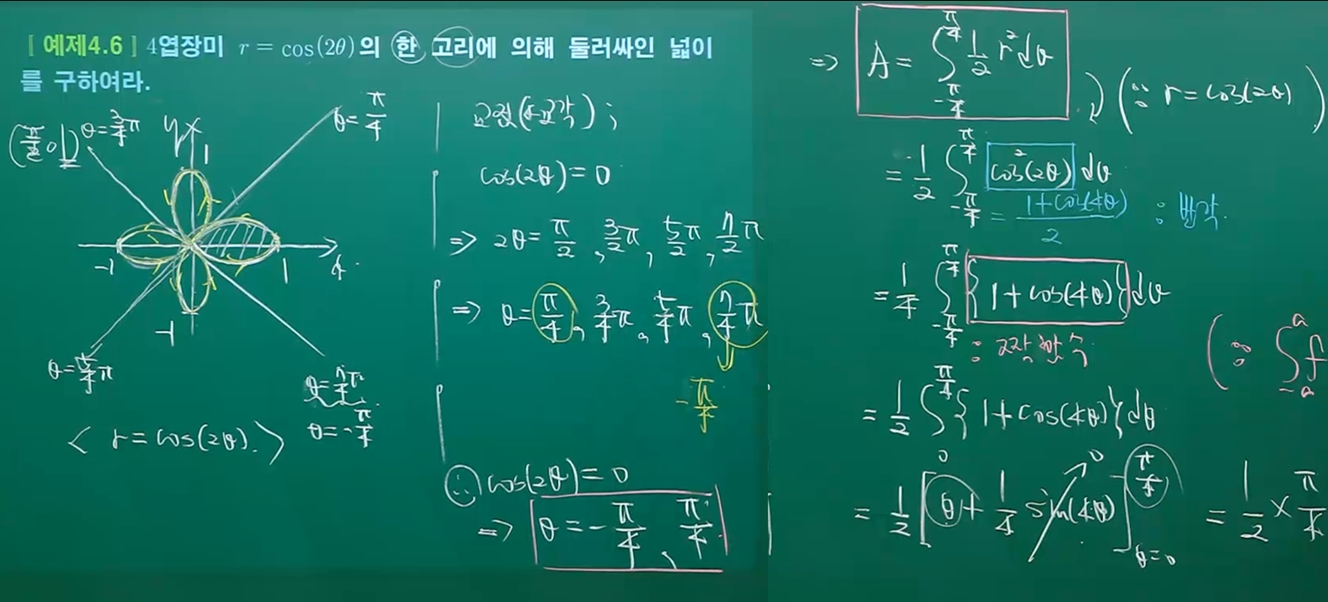 [예제4.6] 4엽장미 r = cos(2θ)의 한 고리에 의해 둘러싸인 넓이
를 구하여라.
θ=3/4π
θ=π/4
(π/2 0|)
y
1
-1
1
-1
θ=5/4π
θ=7/4π
θ=-π/4
< r=cos(2θ). >
교점(교각) ;
cos(2θ)=0
=> 2θ= π/2, 3/2π, 5/2π, 7/2π
=> θ= π/4, 3/4π, 5/4π, 7/4π
-π/4
∴ cos(2θ)=0
=> θ=-π/4, π/4.
=> A= ∫_{-π/4}^{π/4} 1/2 r²dθ
(∵ r=cos(2θ))
= 1/2 ∫_{-π/4}^{π/4} cos²(2θ) dθ
= 1+cos(4θ)/2 : 반각.
= 1/4 ∫_{-π/4}^{π/4} {1+cos(4θ)}dθ
: 짝함수
(∵ ∫_{-a}^{a} f
= 1/2 ∫_{0}^{π/4} {1+cos(4θ)}dθ
= 1/2 [θ+ 1/4 sin(4θ)]_{θ=0}^{π/4} = 1/2 × π/4
0